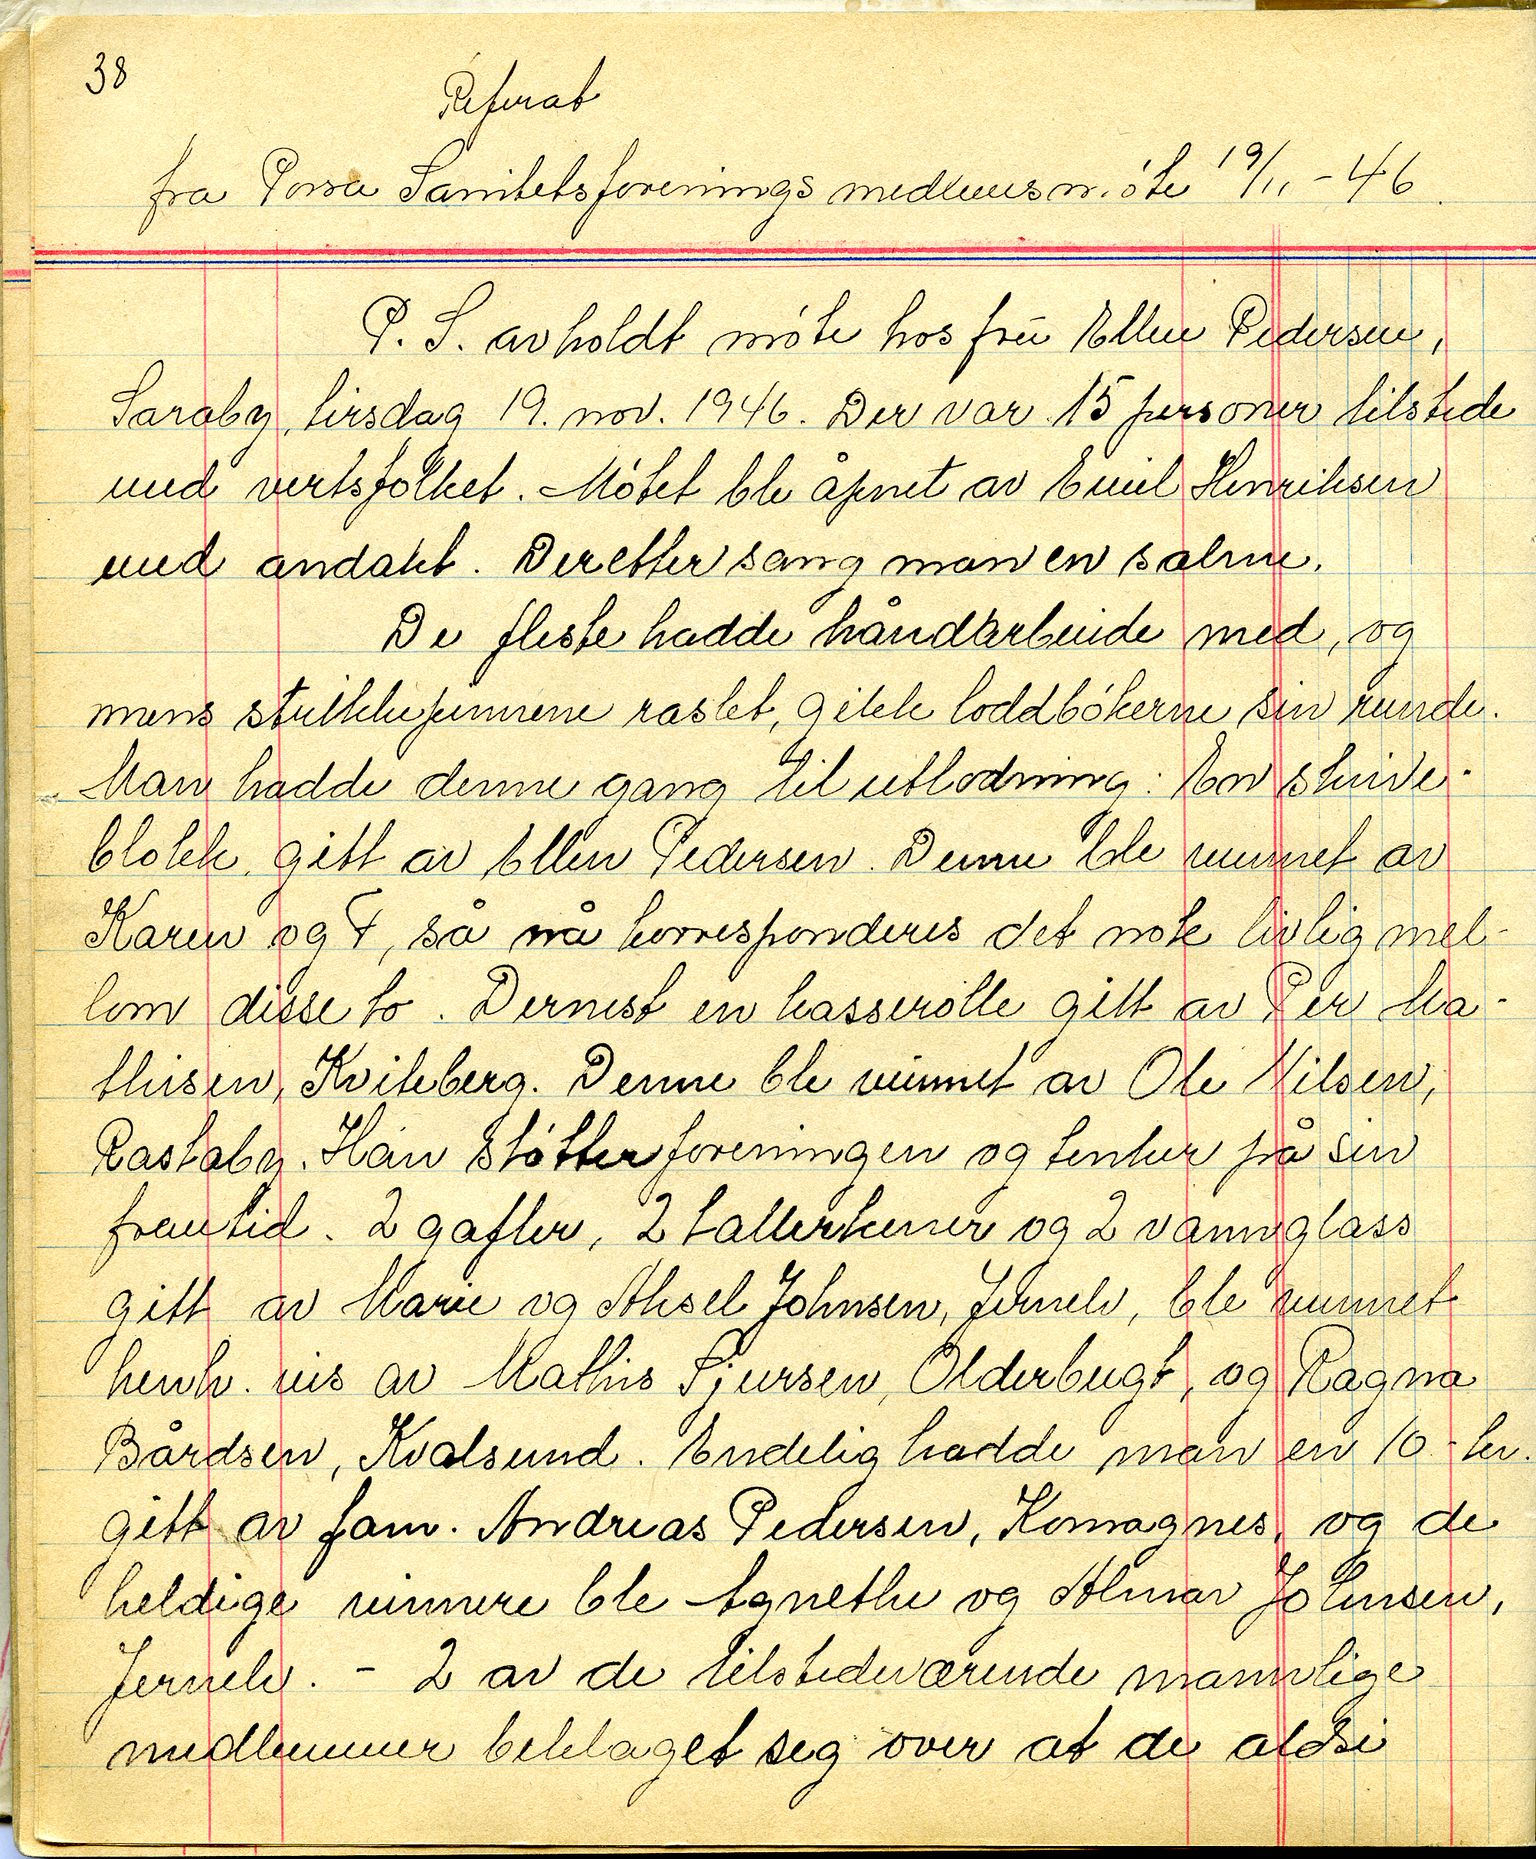 38
Referat
fra Porsa Sanitetsforenings medlemsmöte 19/11 - 46.
P. S. avholdt möte hos frū Ellen Pedersen,
Saraby, tirsdag 19. nov. 1946. Der var 15 personer tilstede
med vertsfolket. Mötet ble åpnet av Emil Henriksen
med andakt. Deretter sang man en salme.
De fleste hadde håndarbeide med, og
mens strikkepinnene raslet, gikk loddbökerne sin runde.
Man hadde denne gang til utlodning: En skrive-
blokk, gitt av Ellen Pedersen. Denne ble vunnet av
Karen og F, så nå korresponderes det nok livlig mel-
lom disse to. Dernest en kasserolle gitt av Per Ma-
thisen, Kviteberg. Denne ble vunnet av Ole Nilsen,
Rastaby. Han stötter foreningen og tenker på sin
fremtid. 2 gafler, 2 tallerkener og 2 vannglass
gitt av Marie og Aksel Johnsen, Jernelv, ble vunnet
henh. vis av Mathis Sjursen, Olderbugt, og Ragna
Bårdsen, Kvalsund. Endelig hadde man en 10-kr.
gitt av fam. Andreas Pedersen, Komagnes, og de
heldige vinnere ble Agnethe og Almar Johnsen,
Jernelv. - 2 av de tilstedeværende mannlige
medlemmer beklaget seg over at de aldri